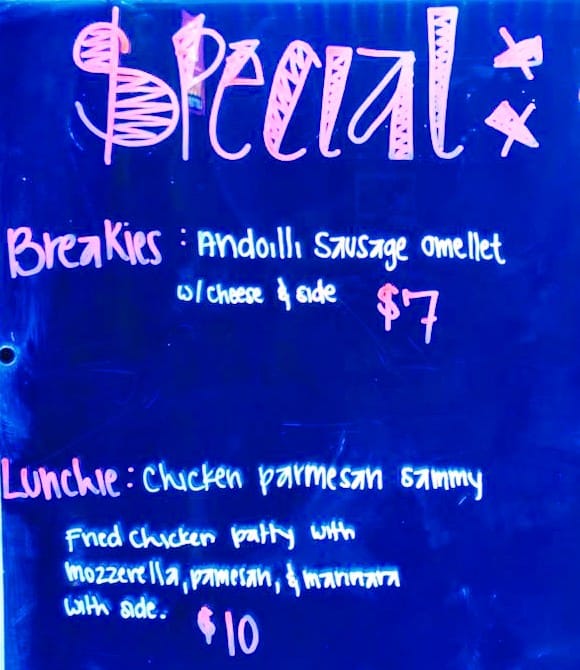 Special:
Breakies : Andoilli Sausage omellet
w/cheese & side $7
Lunchie : Chicken parmesan sammy
Fried Chicken patty with
mozzerella, pamesan, & marinara
with side. $10